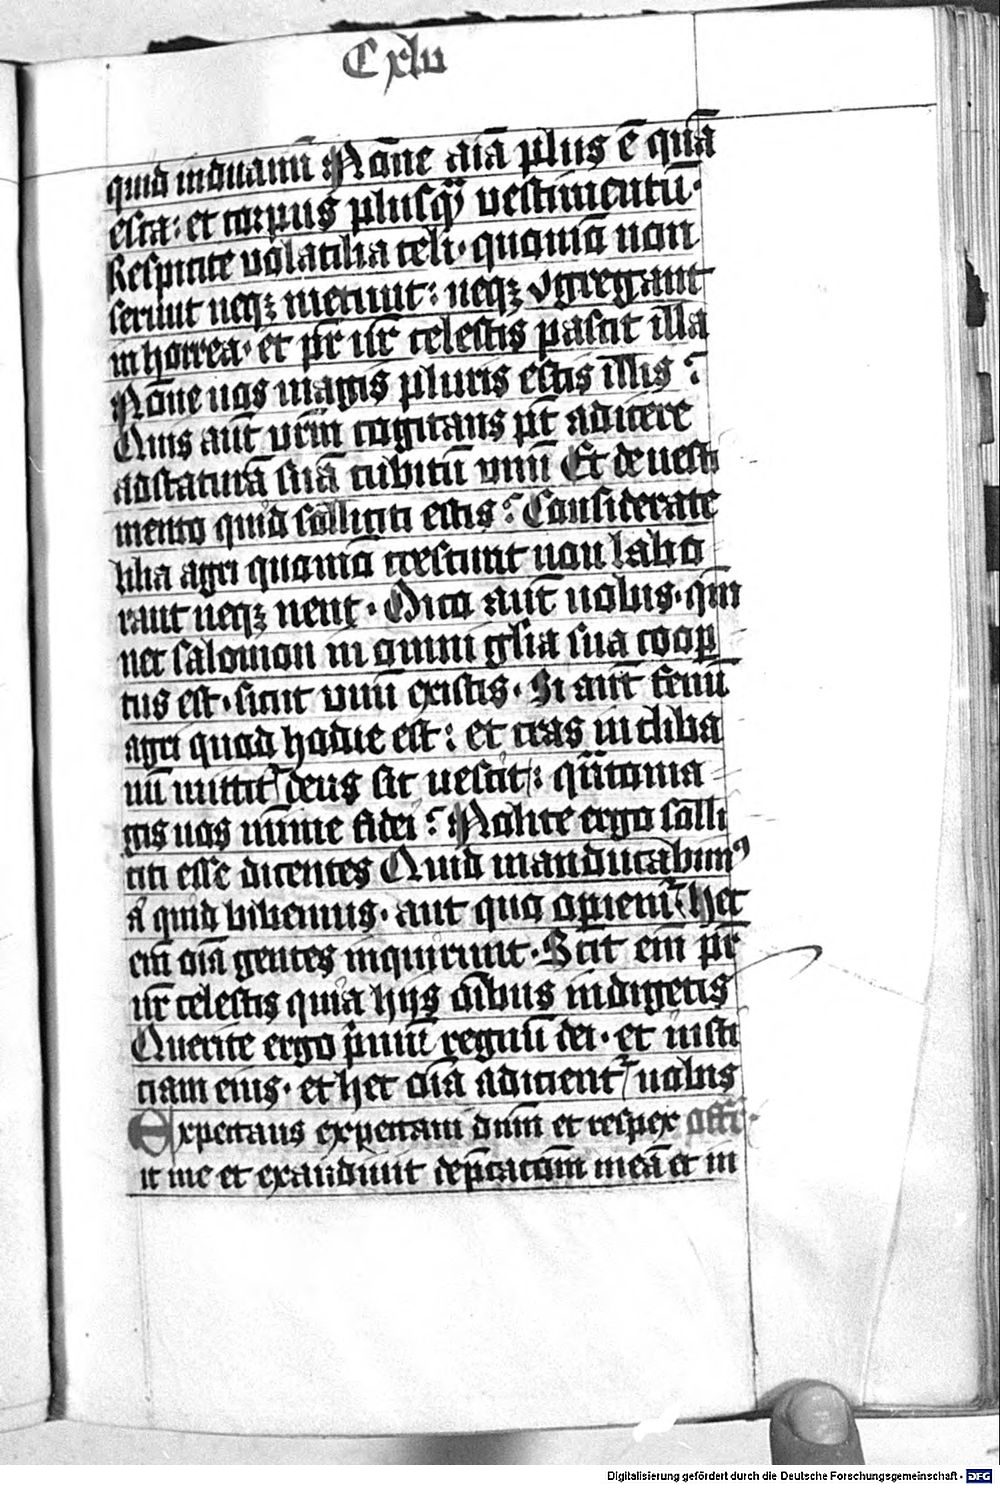 Cxlii
quid induamī Nōne aīa plus ē quā
esca: et corpus plusqꝫ vestimentū·
Respicite volatilia celi· quoniā non
serunt neqꝫ metunt: neqꝫ ꝯgregant
in horrea· et pr̄ vr̄ celestis pascit illa
Nōne uos magis pluris estis illis?
Quis aūt vrm̄ cogitans pt̄ adicere
ad staturā suā cubitū vnū Et de uesti
mento quid sōlliciti estis? Considerate
lilia agri quomō crescunt non labo
rant neqꝫ nent· Dico aūt uobis· qm̄
nec salomon in omni gl̄ia sua coop̄
tus est· sicut vnū ex istis· Si aūt fenū
agri quod hodie est: et cras in cliba
nū mittit᷑ deus sic uestit: qn̄to ma
gis uos mīme fidei? Nolite ergo sōlli
citi esse dicentes Quid manducabimꝰ
aut quid bibemus· aut quo opiem᷑ hec
em̄ oīa gentes inquirunt· Scit em̄ pr̄
vr̄ celestis quia hijs oībus indigetis
Querite ergo p̄mū regnū dei· et iusti
ciam eius· et hec oīa adicient᷑ uobis
Expectans expectaui dnm̄ et respex offr̄
it me et exaudiuit dep̄cacōm meā et in
Digitalisierung gefördert durch die Deutsche Forschungsgemeinschaft - DFG